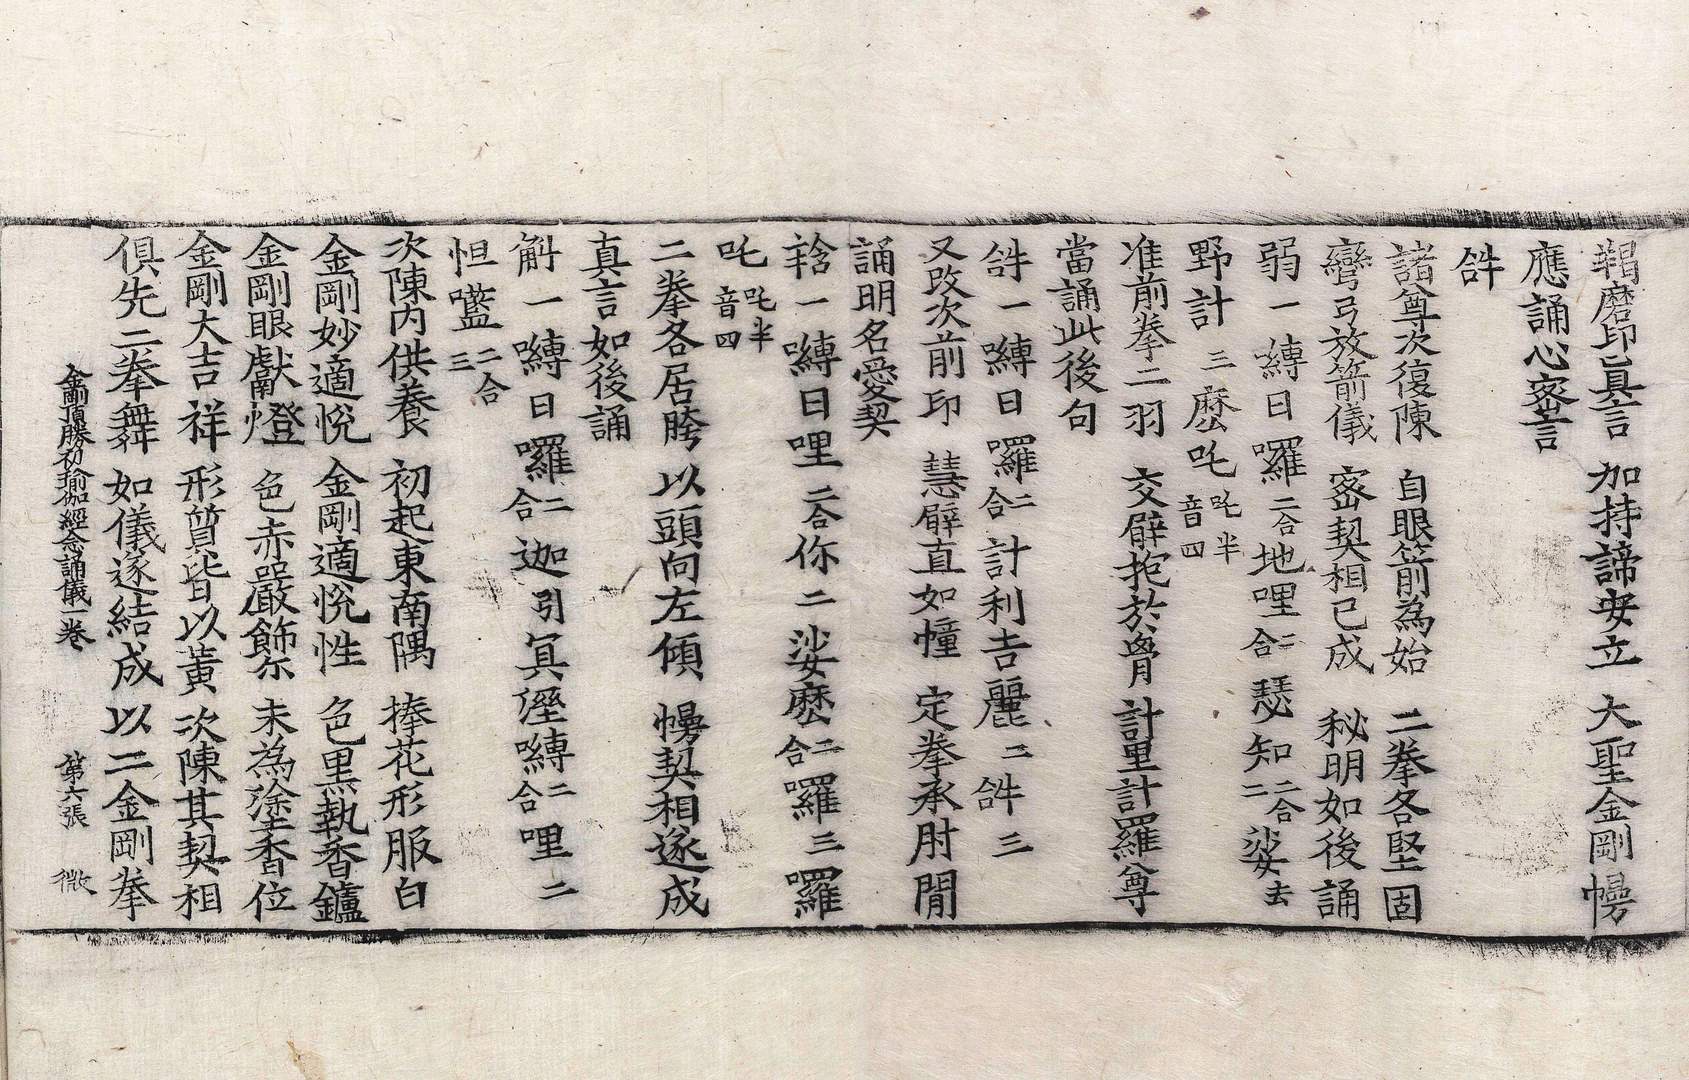 羯磨印眞言　加持諦安立　大聖金剛㡆
應誦心密言
𤙖
諸尊次復陳　自眼箭為始　二拳各堅固
彎弓放箭儀　密契相已成　秘明如後誦
弱一嚩日囉二合地哩二合瑟知二合二娑去
野計三麽吒吒半音四
准前拳二羽　交臂抱於胷　計里計羅尊
當誦此後句
𤙖一嚩日囉二合計利吉麗二𤙖三
又改次前印　慧臂直如幢　定拳承肘閒
誦明名愛契
𧭬一嚩日哩二合你二娑麽二合囉三囉
吒吒半音四
二拳各居胯　以頭向左傾　㡆契相遂成
真言如後誦
斛一嚩日囉二合迦引冥溼嚩二合哩二
怛㘕二合三
次陳内供養　初起東南隅　捧花形服白
金剛妙適悅　金剛適悅性　色黒執香鑪
金剛眼獻燈　色赤嚴飾尔　末為塗香位
金剛大吉祥　形質皆以黃　次陳其契相
俱先二拳舞　如儀遂結成　以二金剛拳
金剛頂勝初瑜伽經念誦儀一巻　第六張　微